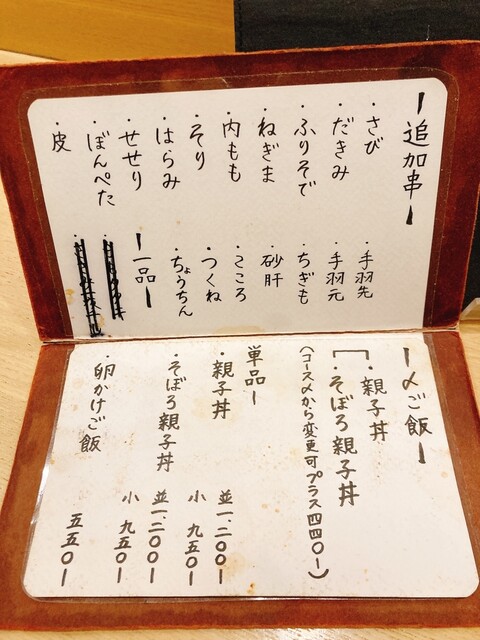 ー追加串ー
・さび
・だきみ
・ふりそで
・ねぎま
・内もも
・そり
・はらみ
・せせり
・ぼんぺた
・皮
・手羽先
・手羽元
・ちぎも
・砂肝
・こころ
・つくね
・ちょうちん
ー一品ー
ー〆ご飯ー
・親子丼
・そぼろ親子丼
(コース〆から変更可プラス四四〇ー)
単品ー
・親子丼
並一、二〇〇ー
小 九五〇ー
・そぼろ親子丼
並一、二〇〇ー
小 九五〇ー
・卵かけご飯
五五〇ー